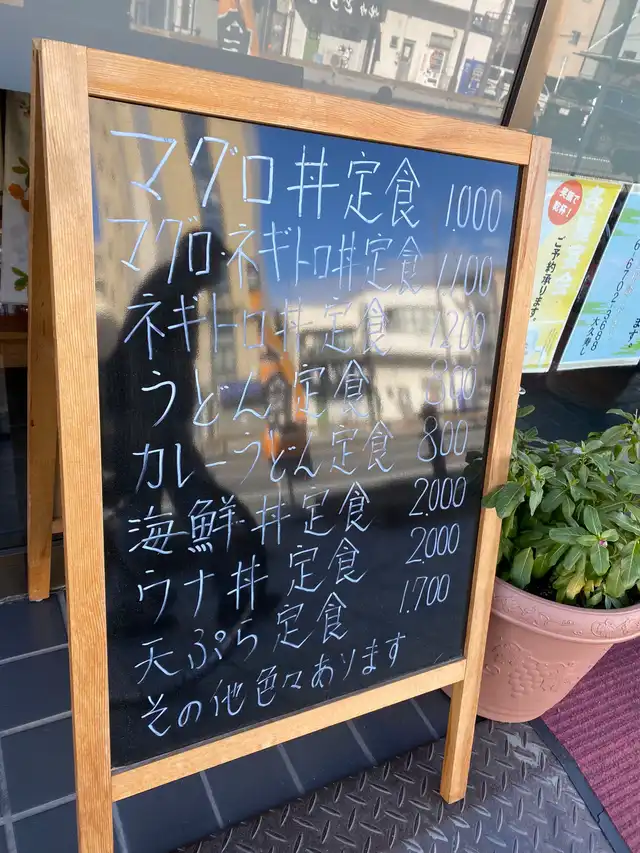 マグロ丼定食 1,000
マグロ・ネギトロ丼定食 1100
ネギトロ丼定食 1200
うどん定食 800
カレーうどん定食 800
海鮮丼定食 2.000
ウナ丼定食 2.000
天ぷら定食 1.700
その他色々あります
笑顔で
乾杯!
ご予約承ります。
6702-3688
大久寿し